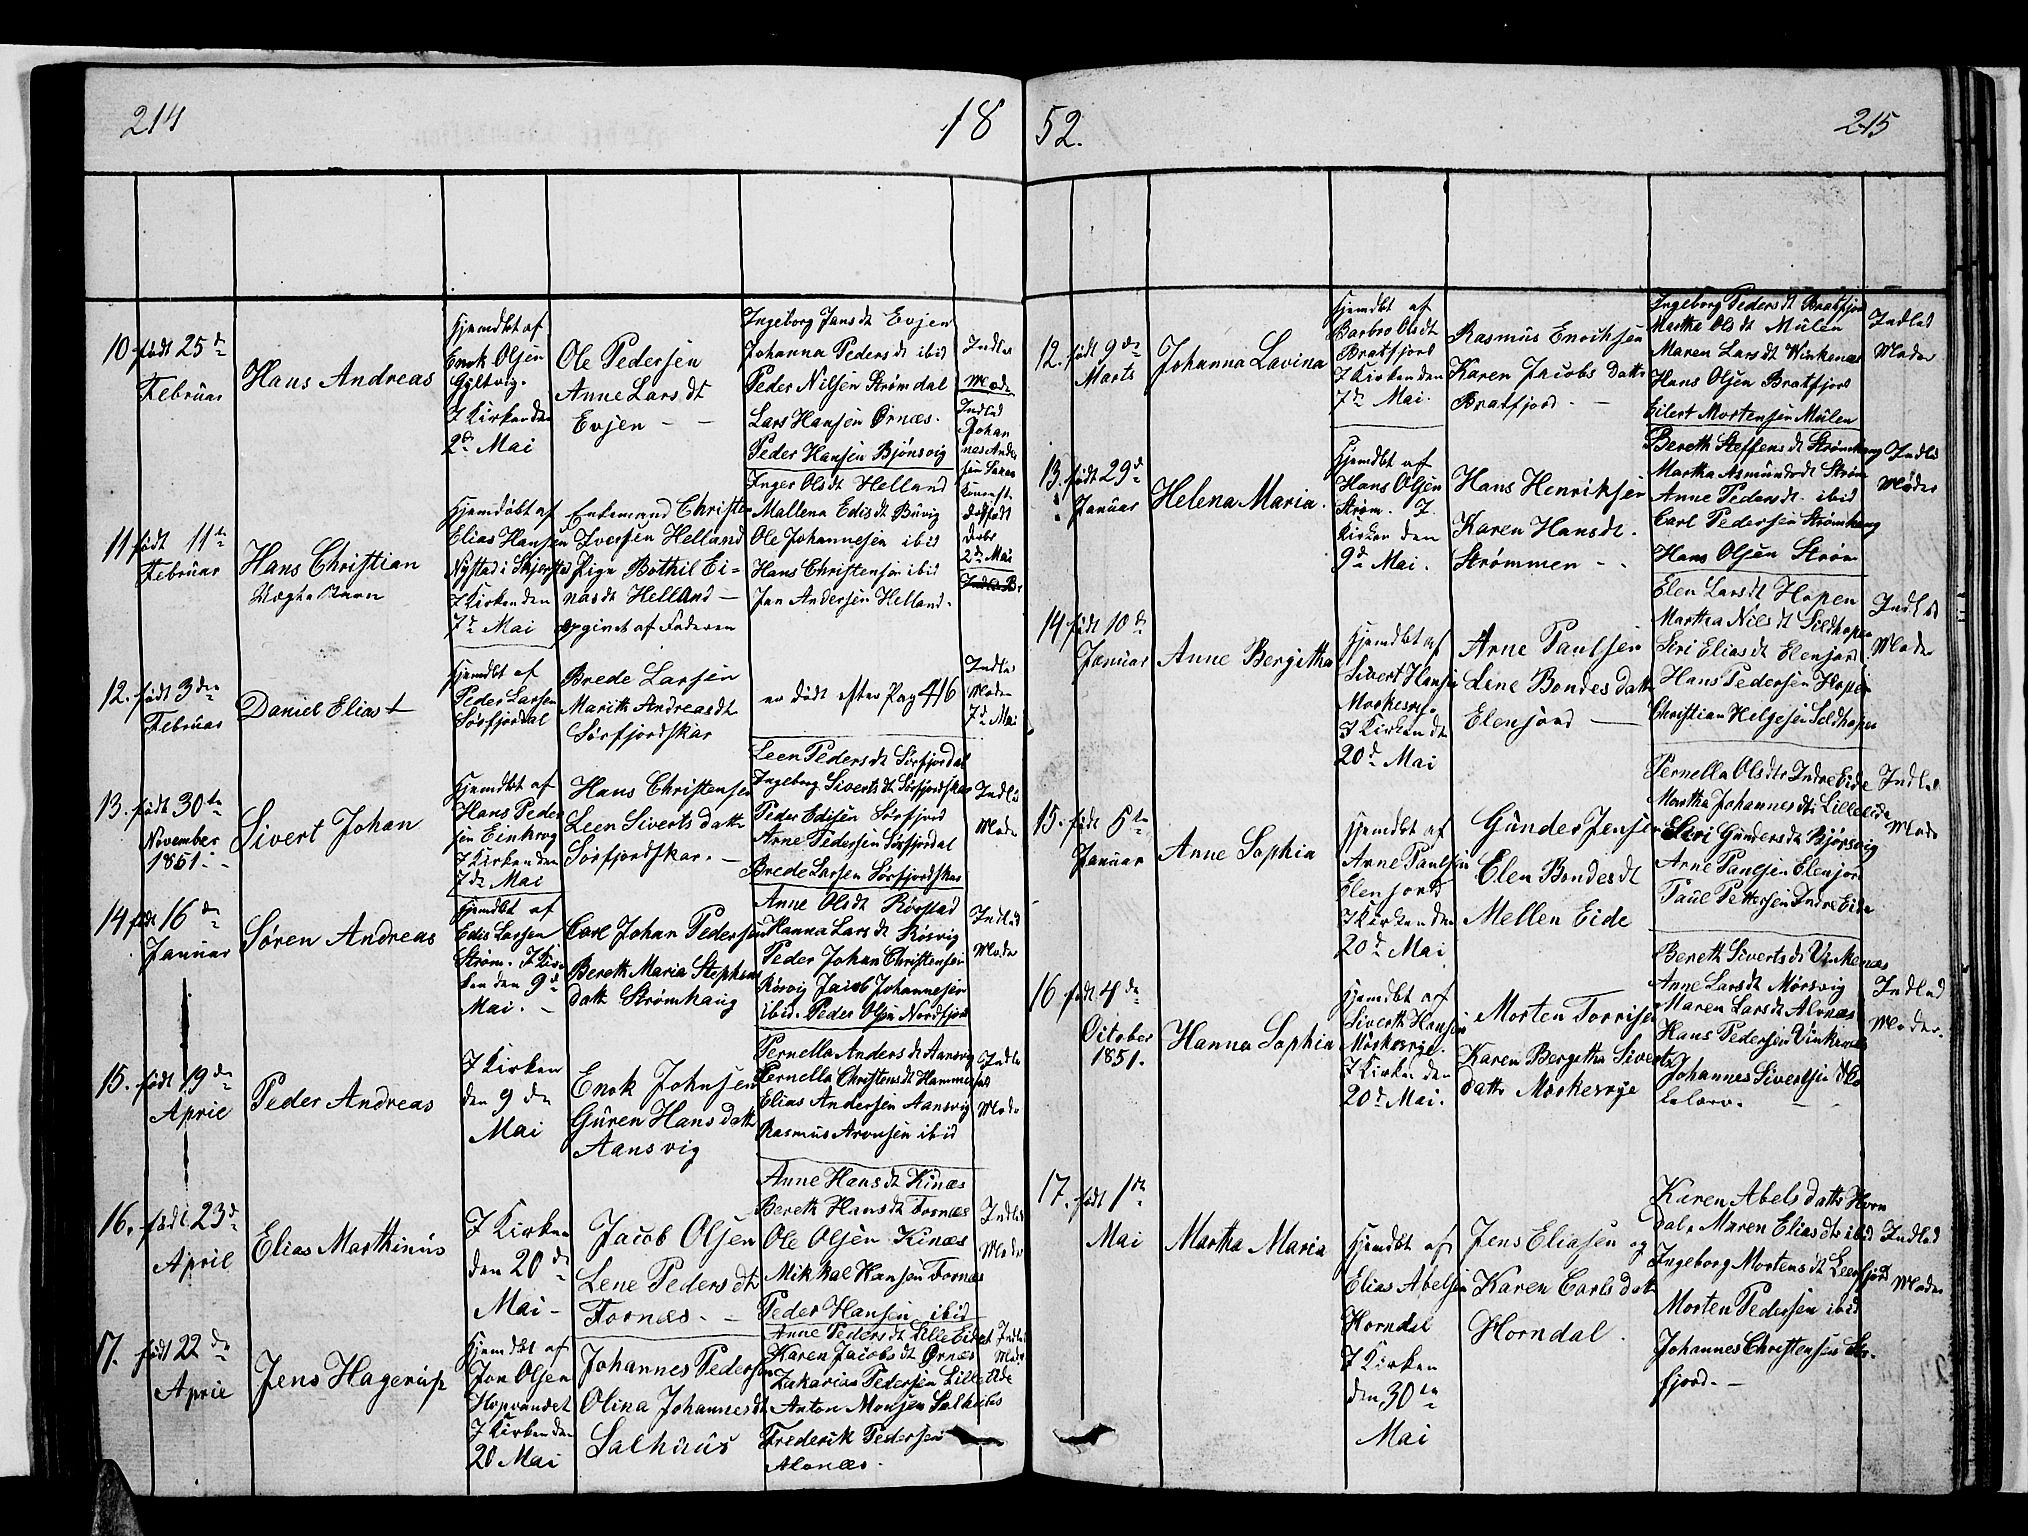 214
18
10 født 25de
Februar
Hans Andreas
Hjemdbt af
Enok Olsen
Gyltvig.
I Kirken den
2de Mai
Ole Pedersen
Anne Larsdt
Evjen
Ingeborg Jansdt Evjen
Johanna Pedersdt ibid
Peder Nilsen Strømdal
Lars Hansen Ørnæs.
Peder Hansen Bjønsvig
Indled
Mode
11 født 11te
Februar
Hans Christian
Uægte Barn
Hjemdøbt af
Elias Hansen
Nystad i Skjerstad
I Kirken den
7de Mai
Enkemand Christen
Iversen Helland
Pige Bothil Ei-
nasdt Helland
opgivet af Faderen
Inger Olsdt Helland
Mallena Edisdt Buvig
Ole Johannesen ibid
Hans Christensen ibid
Jan Andersen Helland.
Indled
Johan
nes Ander
sen
2de Mai
12. født 3die
Februar
Daniel Elias +
Hjemdbt af
Peder Larsen
Sørfjordal
Brede Larsen
Marith Andreasdt
Sørfjordskar
er dødt efter Pag 416
Indled
Moder
7de Mai
13. født 30te
November
1851.
Sivert Johan
Hjemdbt af
Hans Peder
sen Einkrog
I Kirken den
7de Mai
Hans Christensen
Leen Siverts datt
Sørfjordskar.
Leen Pedersdt Sørfjordal
Ingeborg Sivertsdt Sørfjordskar
Peder Edisen Sørfjord
Arne Pedersen Sørfjordal
Brede Larsen Sørfjordskar
Indled
Mode
14 født 16de
Januar
Søren Andreas
Hjemdbt af
Edis Larsen
Strøm. I Kir
ken den 9de
Mai.
Carl Johan Pedersen
Bereth Maria Stephens
datt Strømhaug
Anne Olsdt Rørstad
Hanna Larsdt Røsvig
Peder Johan Christensen
Rørvig Jacob Johannesen
ibid. Peder Olsen Nordfjord
Indled
Moder
15. født 19de
April
Peder Andreas
I Kirken
den 9de
Mai
Enok Johnsen
Guren Hans datt
Aansvig
Pernella Andersdt Aansvig
Pernella Christensdt Hammernes
Elias Andersen Aansvig
Rasmus Aronsen ibid
Indled
Mode
16. født 23de
April
Elias Marthinus
I Kirken
den 20de
Mai
Jacob Olsen
Lene Pedersdt
Fornæs.
Anne Hansdt Kinæs
Bereth Hansdt Fornæs
Ole Olsen Kinæs
Mikkal Hansen Fornæs
Peder Hansen ibid
Indled
Mode
17. født 22de
April
Jens Hagerup
Hjemdbt af
Jon Olsen
Hopvandet
I Kirken den
20 Mai
Johannes Pedersen
Olina Johannesdt
Salhuus
Anne Pedersdt Lille Eidet
Karen Jacobsdt Ørnæs
Zakarias Pedersen Lille Eide
Anton Monsen Salhus
Frederik Pedersen
Alonæs.
Indled
Mode
52.
215
12. født 9de
Marts
Johanna Lavina
Hjemdbt af
Barbro Olsdt
Bratfjord
I Kirken den
7de Mai.
Rasmus Enriksen
Karen Jacobs datt
Bratfjord.
Ingeborg Pedersdt Bratfjord
Martha Olsdt Mulen
Maren Larsdt Winkenæs
Hans Olsen Bratfjord
Eilert Mortensen Mulen
Indled
Moder
13. født 29de
Januar
Helena Maria.
Hjemdbt af
Hans Olsen
Strøm. I
Kirken den
9de Mai.
Hans Henriksen
Karen Hansdt.
Strømmen
Bereth Steffensdt Strømhaug
Martha Asmundsdt Strøm
Anne Pedersdt ibid
Carl Pedersen Strømhaug
Hans Olsen Strøm
Indled
Moder
14 født 10de
Januar
Anne Bergitha
Hjemdbt af
Sivert Hansen
Morkesvje.
I Kirken d
20de Mai
Arne Paulsen
Lene Bondes datt
Elenjord
Elen Larsdt Hopen
Martha Nilsdt Sildhopen
Seri Eliasdt Elenjord
Hans Pedersen Hopen
Christian Helgesen Seldhopen
Indled
Moder
15. født 5te
Januar
Anne Sophia
Hjemdbt af
Arne Paulsen
Elenjord
I Kirken den
20de Mai
Gunder Jensen
Elen Bondesdt
Mellen Eide
Pernella Olsdtr Indre Eide
Martha Johannesdtr Lilleeide
Seri Gundersdt Bjørsvig
Arne Paulsen Elenjord
Paul Pettersen Indre Eide
Indled
Mode
16 født 4de
October
1851.
Hanna Sophia
Hjemdbt af
Siverth Hansen
Mørkesvje.
I Kirken den
20de Mai.
Morten Torrisen
Karen Bergetha Siverts
datt Mørkesvje
Bereth Sivertsdt Vinkenæs
Anne Larsdt Mørsvig
Maren Larsdt Alonæs
Hans Pedersen Vinkenæs
Johannes Sivertsen
Indled
Moder.
17. født 1ste
Mai
Martha Maria
Hjemdbt af
Elias Abelsen
Horndal
I Kirken
den 30te
Mai
Jens Eliasen og
Karen Carls datt
Horndal.
Karen Abels datt Horn
dal. Maren Eliasdt ibid
Ingeborg Mortensdt Leerfjord
Morten Pedersen ibid
Johannes Christensen
fjord.
Indled
Moder